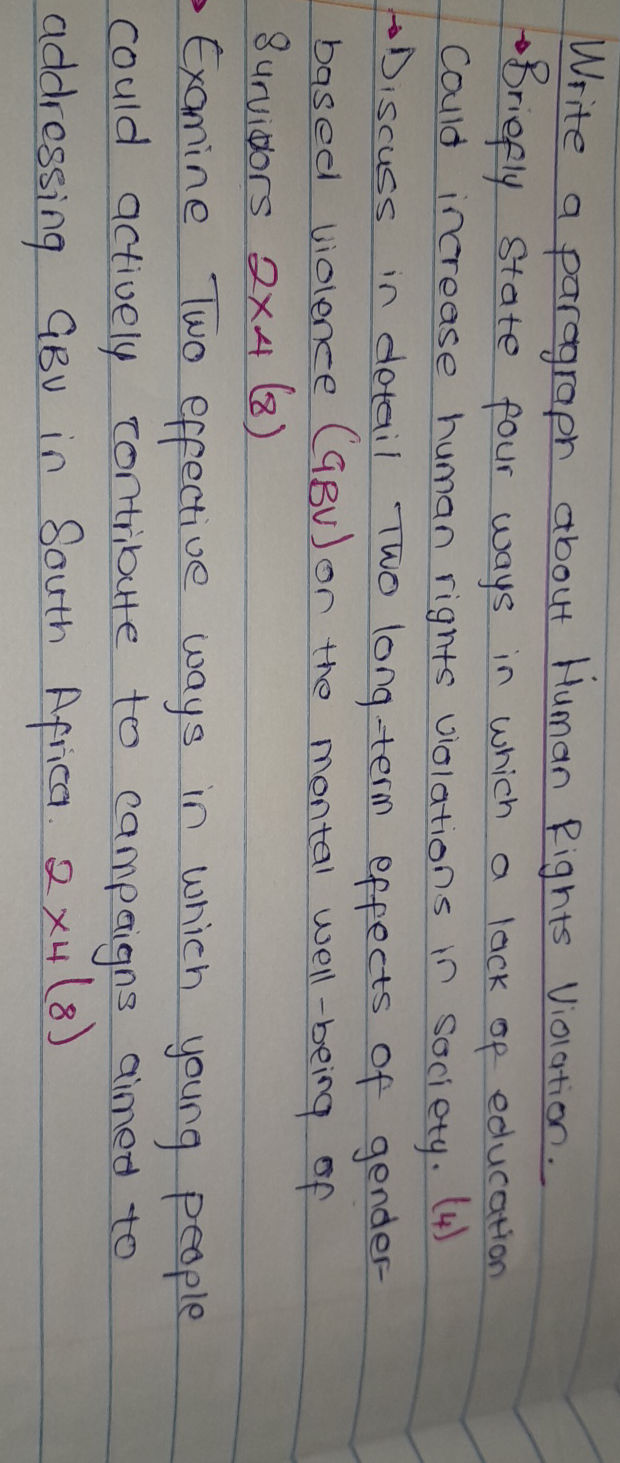 Write a paragraph about Human Rights Violation.
→ Briefly state four ways in which a lack of education
could increase human rights violations in society. (4)
→ Discuss in detail Two long-term effects of gender-
based violence (GBV) on the mental well-being of
Survivors 2×4 (8)
→ Examine Two effective ways in which young people
could actively contribute to campaigns aimed to
addressing GBV in South Africa. 2×4 (8)